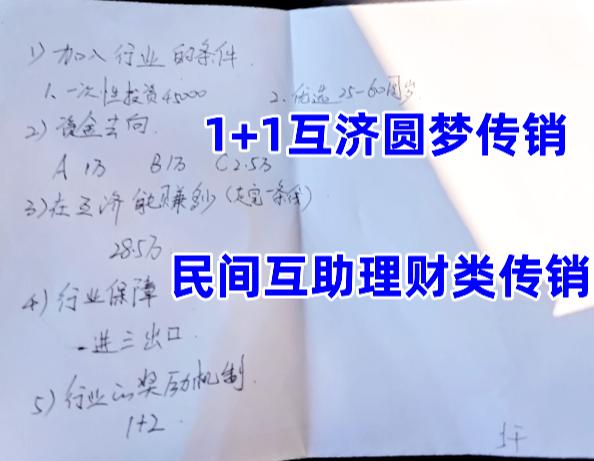 1) 加入行业的条件.
1、一次性投资45000 2、优选25-60周岁.
2) 资金去向.
1+1互济圆梦传销
A 1万 B1万 C 2.5万
3) 在互济能赚多少(走完一条线)
28.5万
民间互助理财类传销
4) 行业保障
一进三出口
5) 行业的奖励机制.
1+2